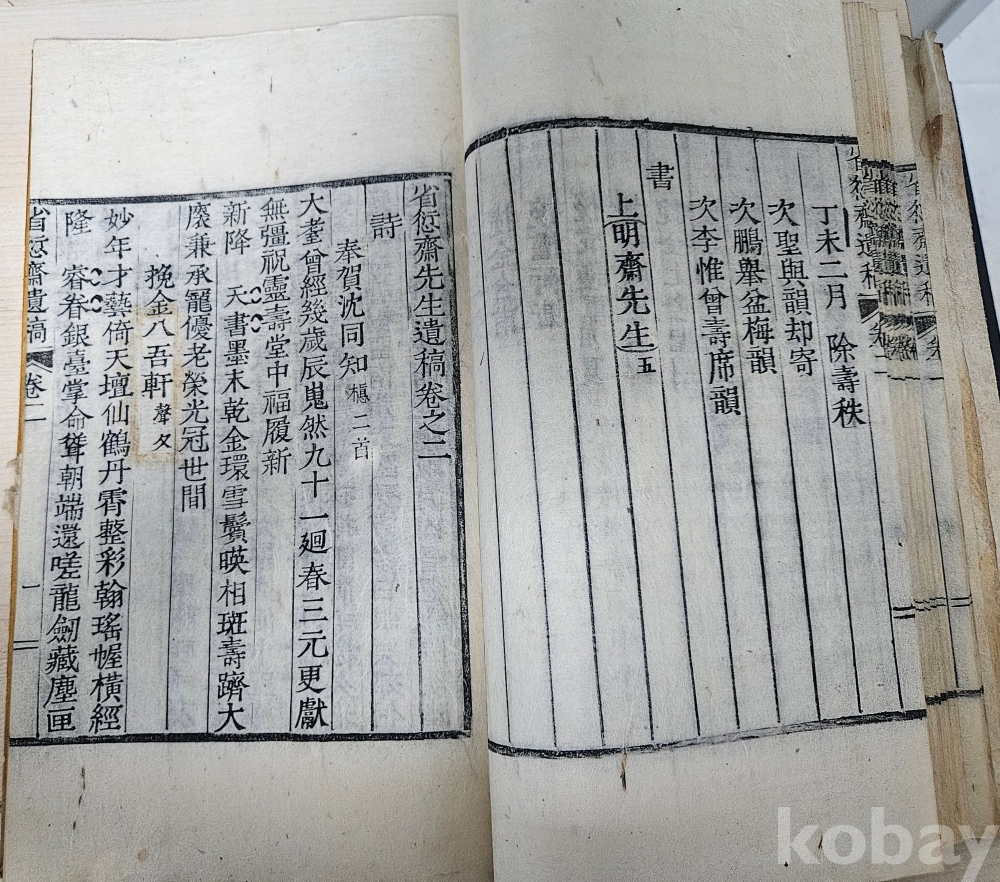 丁未二月 除壽秩
次聖與韻却寄
次鵬擧盆梅韻
次李惟曾壽席韻
書
上明齋先生五
省愆齋先生遺稿卷之二
詩
奉賀沈同知櫶二首
大耋曾經幾歲辰嵬然九十一廻春三元更獻
無彊祝靈壽堂中福履新
新降 天書墨未乾金環雪鬢暎相斑壽躋大
褒兼承寵優老榮光冠世間
挽金八吾軒聲久
妙年才藝倚天壇仙鶴丹霄整彩翰瑤幄橫經
隆 睿眷銀臺掌命聳朝端還嗟龍劒藏塵匣
省愆齋遺稿 卷二 一
kobay